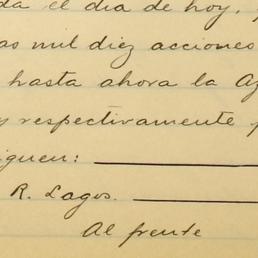 da el día de hoy,
as mil diez acciones
hasta ahora la Az
y respectivamente
iguen:
R. Lagos.
Al frente